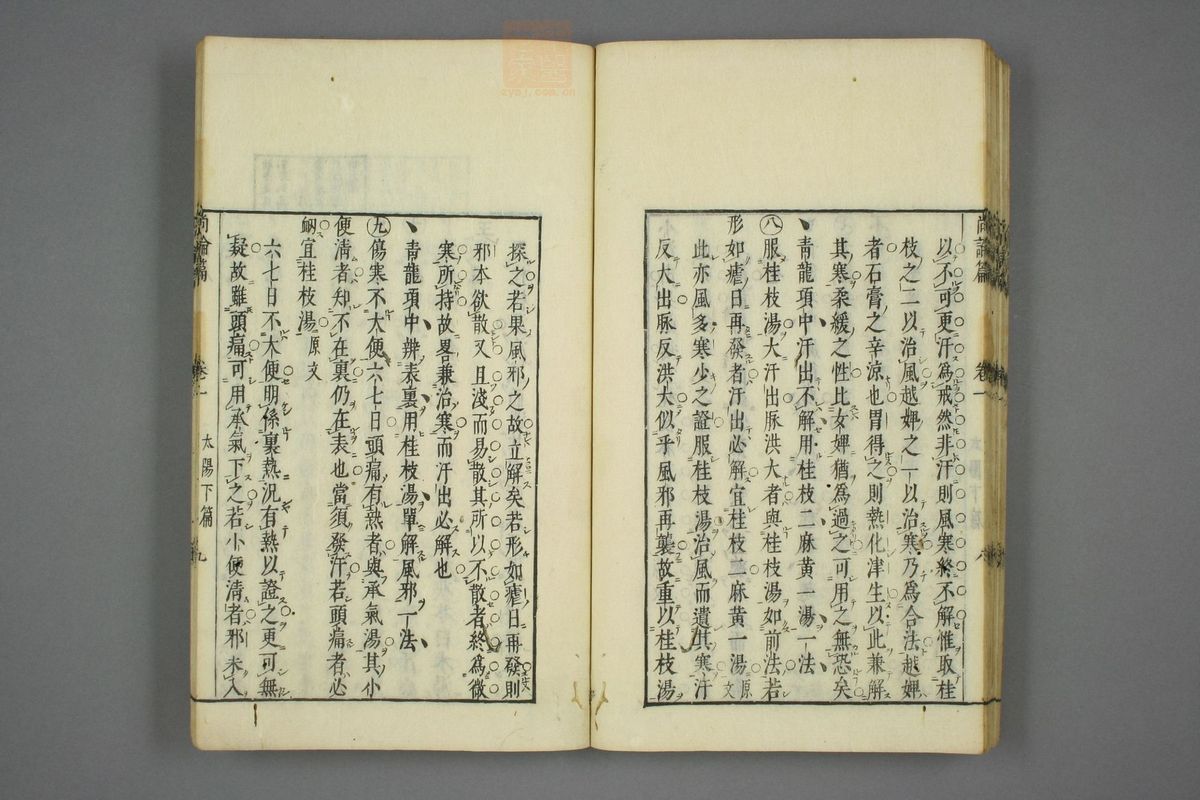 尚論篇 卷一 太陽下篇 八
以不可更汗爲戒然非汗則風寒終不解惟取桂
枝之二以治風越婢之一以治寒乃爲合法越婢
者石膏之辛涼也胃得之則熱化津生以此兼解
其寒柔緩之性比女婢猶爲過之可用之無恐矣
青龍項中汗出不解用桂枝二麻黃一湯一法
八服桂枝湯大汗出脉洪大者與桂枝湯如前法若
形如瘧日再發者汗出必解宜桂枝二麻黃一湯原文
此亦風多寒少之證服桂枝湯治風而遺其寒汗
反大出脉反洪大似乎風邪再襲故重以桂枝湯
探之若果風邪之故立解矣若形如瘧日再發則
邪本欲散又且淺而易散其所以不散者終爲微
寒所持故畧兼治寒而汗出必解也
青龍項中辨表裏用桂枝湯單解風邪一法
九傷寒不大便六七日頭痛有熱者與承氣湯其小
便清者知不在裏仍在表也當須發汗若頭痛者必
衂宜桂枝湯原文
六七日不大便明係裏熱況有熱以證之更可無
疑故雖頭痛可用承氣下之若小便清者邪未入
尚論篇 卷一 太陽下篇 九
醫家
zyoj.com.cn